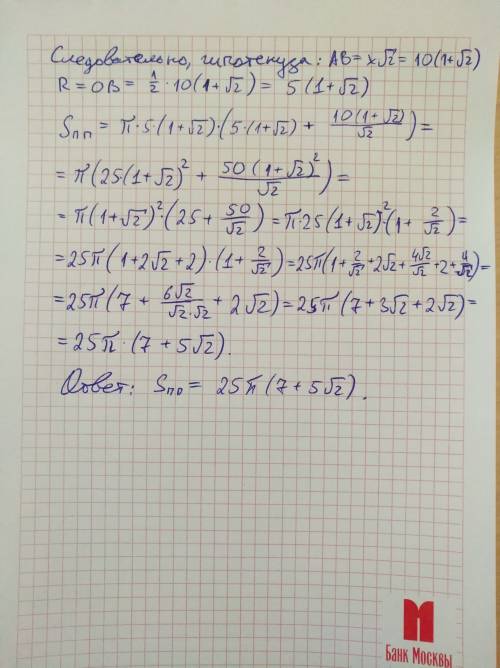 Следовательно, гипотенуза: AB = x√2 = 10(1+√2)
R = OB = 1/2 · 10(1+√2) = 5(1+√2)
Sпп = π·5·(1+√2)·(5·(1+√2) + 10(1+√2)/√2) =
= π(25(1+√2)² + 50(1+√2)²/√2) =
= π(1+√2)²·(25 + 50/√2) = π·25(1+√2)²·(1 + 2/√2) =
= 25π(1+2√2+2)·(1+2/√2) = 25π(1+2/√2+2√2+4√2/√2+2+4/√2) =
= 25π(7 + 6√2/√2·√2 + 2√2) = 25π(7+3√2+2√2) =
= 25π·(7+5√2).
Ответ: Sпо = 25π(7+5√2).
Банк Москвы